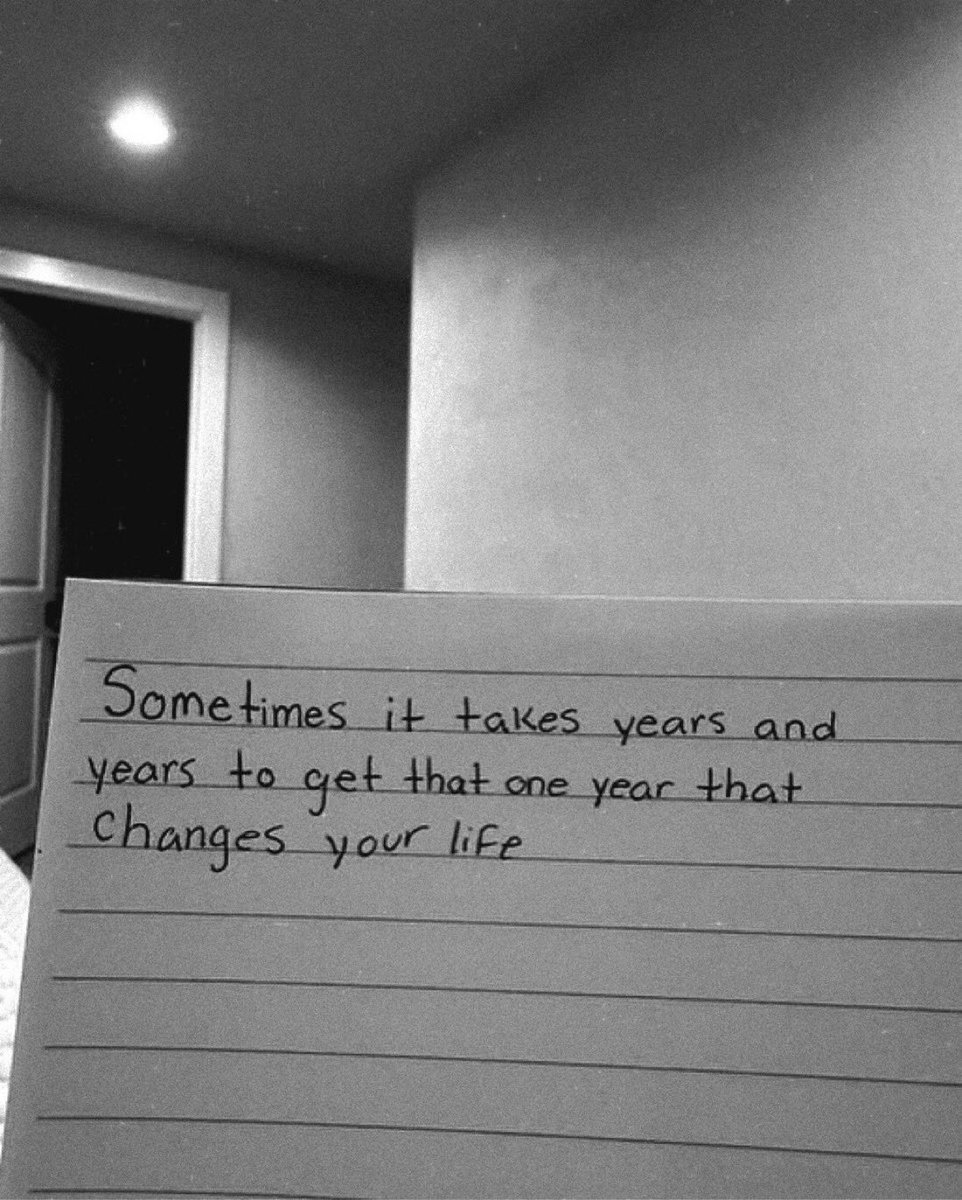 Sometimes it takes years and
years to get that one year that
changes your life